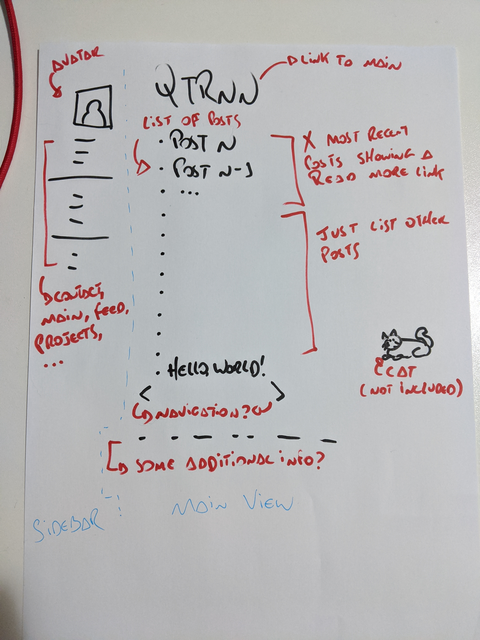 AVATAR
QTRNN
LINK TO MAIN
LIST OF POSTS
• POST N
• POST N-1
• ...
X MOST RECENT
POSTS SHOWING A
READ MORE LINK
JUST LIST OTHER
POSTS
CONTACT,
MAIN, FEED,
PROJECTS,
...
• HELLO WORLD!
< >
NAVIGATION?
CAT
(NOT INCLUDED)
SOME ADDITIONAL INFO?
SIDEBAR
MAIN VIEW